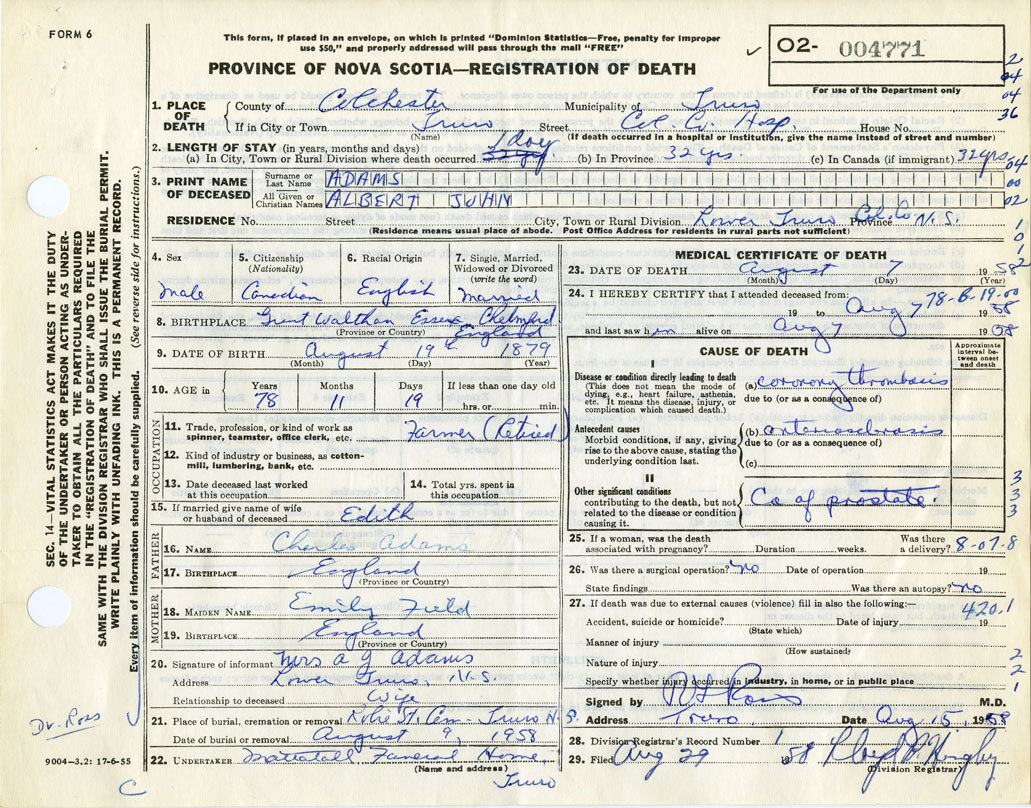 FORM 6
This form, if placed in an envelope, on which is printed "Dominion Statistics—Free, penalty for improper
use $50," and properly addressed will pass through the mail "FREE"
✓ 02- 004771
PROVINCE OF NOVA SCOTIA—REGISTRATION OF DEATH
For use of the Department only
2
04
04
36
1. PLACE OF DEATH County of Colchester Municipality of Truro
If in City or Town Truro Street Col Co. Hosp House No.
(Name) (If death occurred in a hospital or institution, give the name instead of street and number)
2. LENGTH OF STAY (in years, months and days) 1 day
(a) In City, Town or Rural Division where death occurred 32 yrs (b) In Province 32 yrs. (c) In Canada (if immigrant) 32 yrs
04
00
02
3. PRINT NAME OF DECEASED Surname or Last Name ADAMS
All Given or Christian Names ALBERT JOHN
RESIDENCE No. Street City, Town or Rural Division Lower Truro Col. Co Province N.S.
(Residence means usual place of abode. Post Office Address for residents in rural parts not sufficient)
1
0
1
2
4. Sex 5. Citizenship (Nationality) 6. Racial Origin 7. Single, Married, Widowed or Divorced (write the word)
Male Canadian English Married
8. BIRTHPLACE Great Walthan Essex Chelmford
(Province or Country) England
9. DATE OF BIRTH August 19th 1879
(Month) (Day) (Year)
10. AGE in Years Months Days If less than one day old
78 11 19 hrs. or min.
OCCUPATION
11. Trade, profession, or kind of work as
spinner, teamster, office clerk, etc. Farmer (Retired)
12. Kind of industry or business, as cotton-
mill, lumbering, bank, etc.
13. Date deceased last worked at this occupation 14. Total yrs. spent in this occupation
15. If married give name of wife
or husband of deceased Edith
FATHER
16. NAME Charles Adams
17. BIRTHPLACE England
(Province or Country)
MOTHER
18. MAIDEN NAME Emily Field
19. BIRTHPLACE England
(Province or Country)
20. Signature of informant Mrs A J Adams
Address Lower Truro, N.S.
Relationship to deceased Wife
21. Place of burial, cremation or removal Cem - Truro N.S.
Date of burial or removal August 9, 1958
22. UNDERTAKER Mattatall Funeral Home
(Name and address) Truro
MEDICAL CERTIFICATE OF DEATH
23. DATE OF DEATH August 7 1958
(Month) (Day) (Year)
24. I HEREBY CERTIFY that I attended deceased from: 78-8-19-00
19 to Aug 7 1958
and last saw him alive on Aug 7 1958
CAUSE OF DEATH
Approximate interval between onset and death
I
Disease or condition directly leading to death
(This does not mean the mode of
dying, e.g., heart failure, asthenia,
etc. It means the disease, injury, or
complication which caused death.)
(a) coronary thrombosis
due to (or as a consequence of)
Antecedent causes
Morbid conditions, if any, giving
rise to the above cause, stating the
underlying condition last.
(b) arteriosclerosis
due to (or as a consequence of)
(c)
II
Other significant conditions
contributing to the death, but not
related to the disease or condition
causing it.
Ca of prostate.
3
3
3
25. If a woman, was the death associated with pregnancy? Duration weeks. Was there a delivery? 8-07-8
26. Was there a surgical operation? No Date of operation 19
State findings Was there an autopsy? No
27. If death was due to external causes (violence) fill in also the following:— 420.1
Accident, suicide or homicide? Date of injury 19
(State which)
Manner of injury
(How sustained)
Nature of injury
Specify whether injury occurred in industry, in home, or in public place
2
2
1
Signed by Ross M.D.
Address Truro. Date Aug 15, 1958
28. Division Registrar's Record Number 1
29. Filed Aug 29 1958 Lloyd
(Division Registrar)
SEC. 14—VITAL STATISTICS ACT MAKES IT THE DUTY
OF THE UNDERTAKER OR PERSON ACTING AS UNDER-
TAKER TO OBTAIN ALL THE PARTICULARS REQUIRED
IN THE "REGISTRATION OF DEATH" AND TO FILE THE
SAME WITH THE DIVISION REGISTRAR WHO SHALL ISSUE THE BURIAL PERMIT.
WRITE PLAINLY WITH UNFADING INK. THIS IS A PERMANENT RECORD.
Every item of information should be carefully supplied. (See reverse side for instructions.)
Dr. Ross
9004—3.2: 17-6-55
C